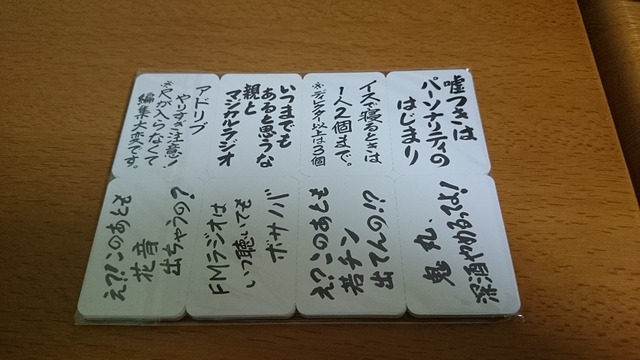 嘘つきは
パーソナリティの
はじまり
イスで寝るときは
1人2個まで。
※ディレクター以上は3個
いつまでも
あると思うな
親と
マジカルラジオ
アドリブ
やりすぎ注意!
※尺が入らなくて
編集大変です。
鬼丸、
深酒やめるってよ!
え?!このあとも
若チン
出てんの!?
FMラジオは
いつ聴いても
ボサノバ
え?!このあとも
花音
出ちゃうの?